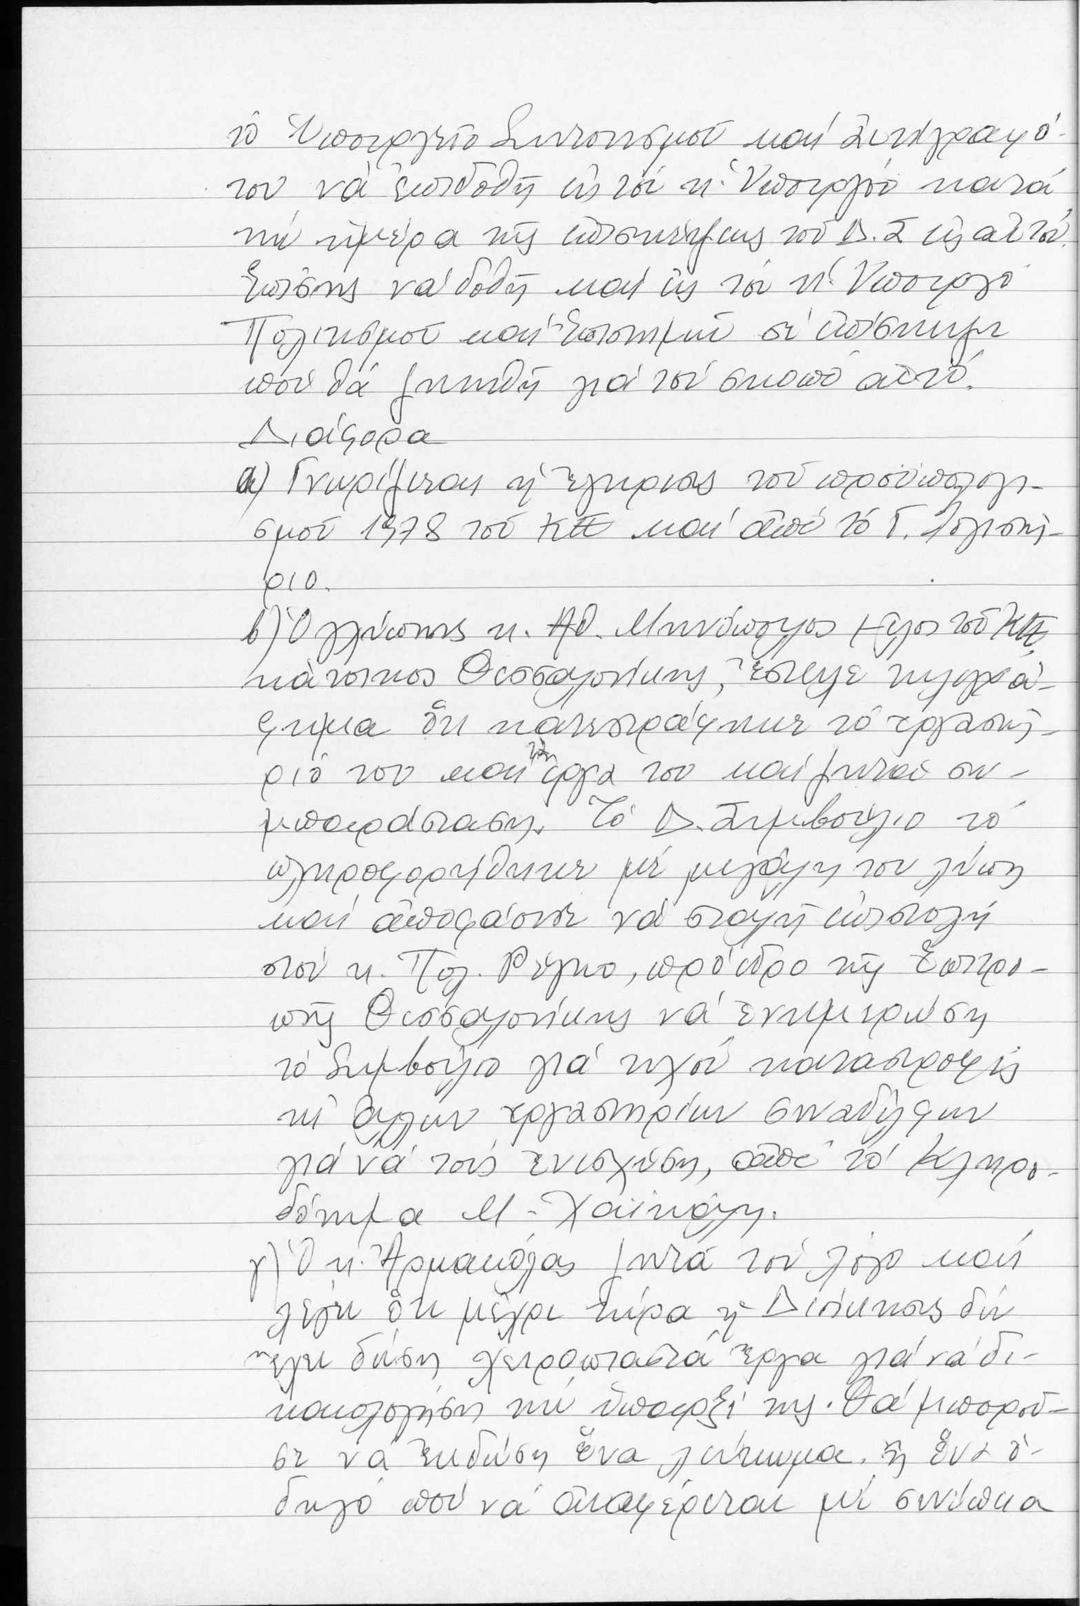 τό Ὑπουργεῖο Συντονισμοῦ καί ἀντίγραφό
του νά ἐπιδοθῆ εἰς τόν κ. Ὑπουργό κατά
τήν ἡμέρα τῆς ἐπισκέψεως τοῦ Δ.Σ εἰς αὐτόν.
Ἐπίσης νά δοθῆ καί εἰς τόν κ. Ὑπουργό
Πολιτισμοῦ καί Ἐπιστημῶν σέ ἐπίσκεψη
πού θά ζητηθῆ γιά τόν σκοπό αὐτό.
Διάφορα
α) Γνωρίζεται ἡ ἔγκρισις τοῦ προϋπολογι-
σμοῦ 1978 τοῦ ΚΕ καί ἀπό τό Γ. Λογιστή-
ριο.
β) Ὁ γλύπτης κ. Αθ. Μηνόπουλος μέλος τοῦ ΚΕ
κάτοικος Θεσσαλονίκης, ἔστειλε τηλεγρά-
φημα ὅτι κατεστράφηκε τό ἐργαστή-
ριό του καί τά ἔργα του καί ζητάει συ-
μπαράσταση. Τό Δ. Συμβούλιο τό
πληροφορήθηκε μέ μεγάλη του λύπη
καί ἀποφάσισε νά σταλῆ ἐπιστολή
στόν κ. Πολ. Ρέγκο, πρόεδρο τῆς Ἐπιτρο-
πῆς Θεσσαλονίκης νά ἐνημερώση
τό Συμβούλιο γιά τυχόν καταστροφές
κι' ἄλλων ἐργαστηρίων συναδέλφων
γιά νά τούς ἐνισχύση, ἀπό τό Κληρο-
δότημα Μ - Χαϊκάλη.
γ) Ὁ κ. Ἀρμακόλας ζητᾶ τόν λόγο καί
λέγει ὅτι μέχρι τώρα ἡ Διοίκησις δέν
ἔχει δώση χειροπιαστά ἔργα γιά νά δι-
καιολογήση τήν ὕπαρξί της. Θά μποροῦ-
σε νά ἐκδώση ἕνα λεύκωμα ἤ ἕνα ὁ-
δηγό πού νά ἀναφέρεται μέ συνέπεια